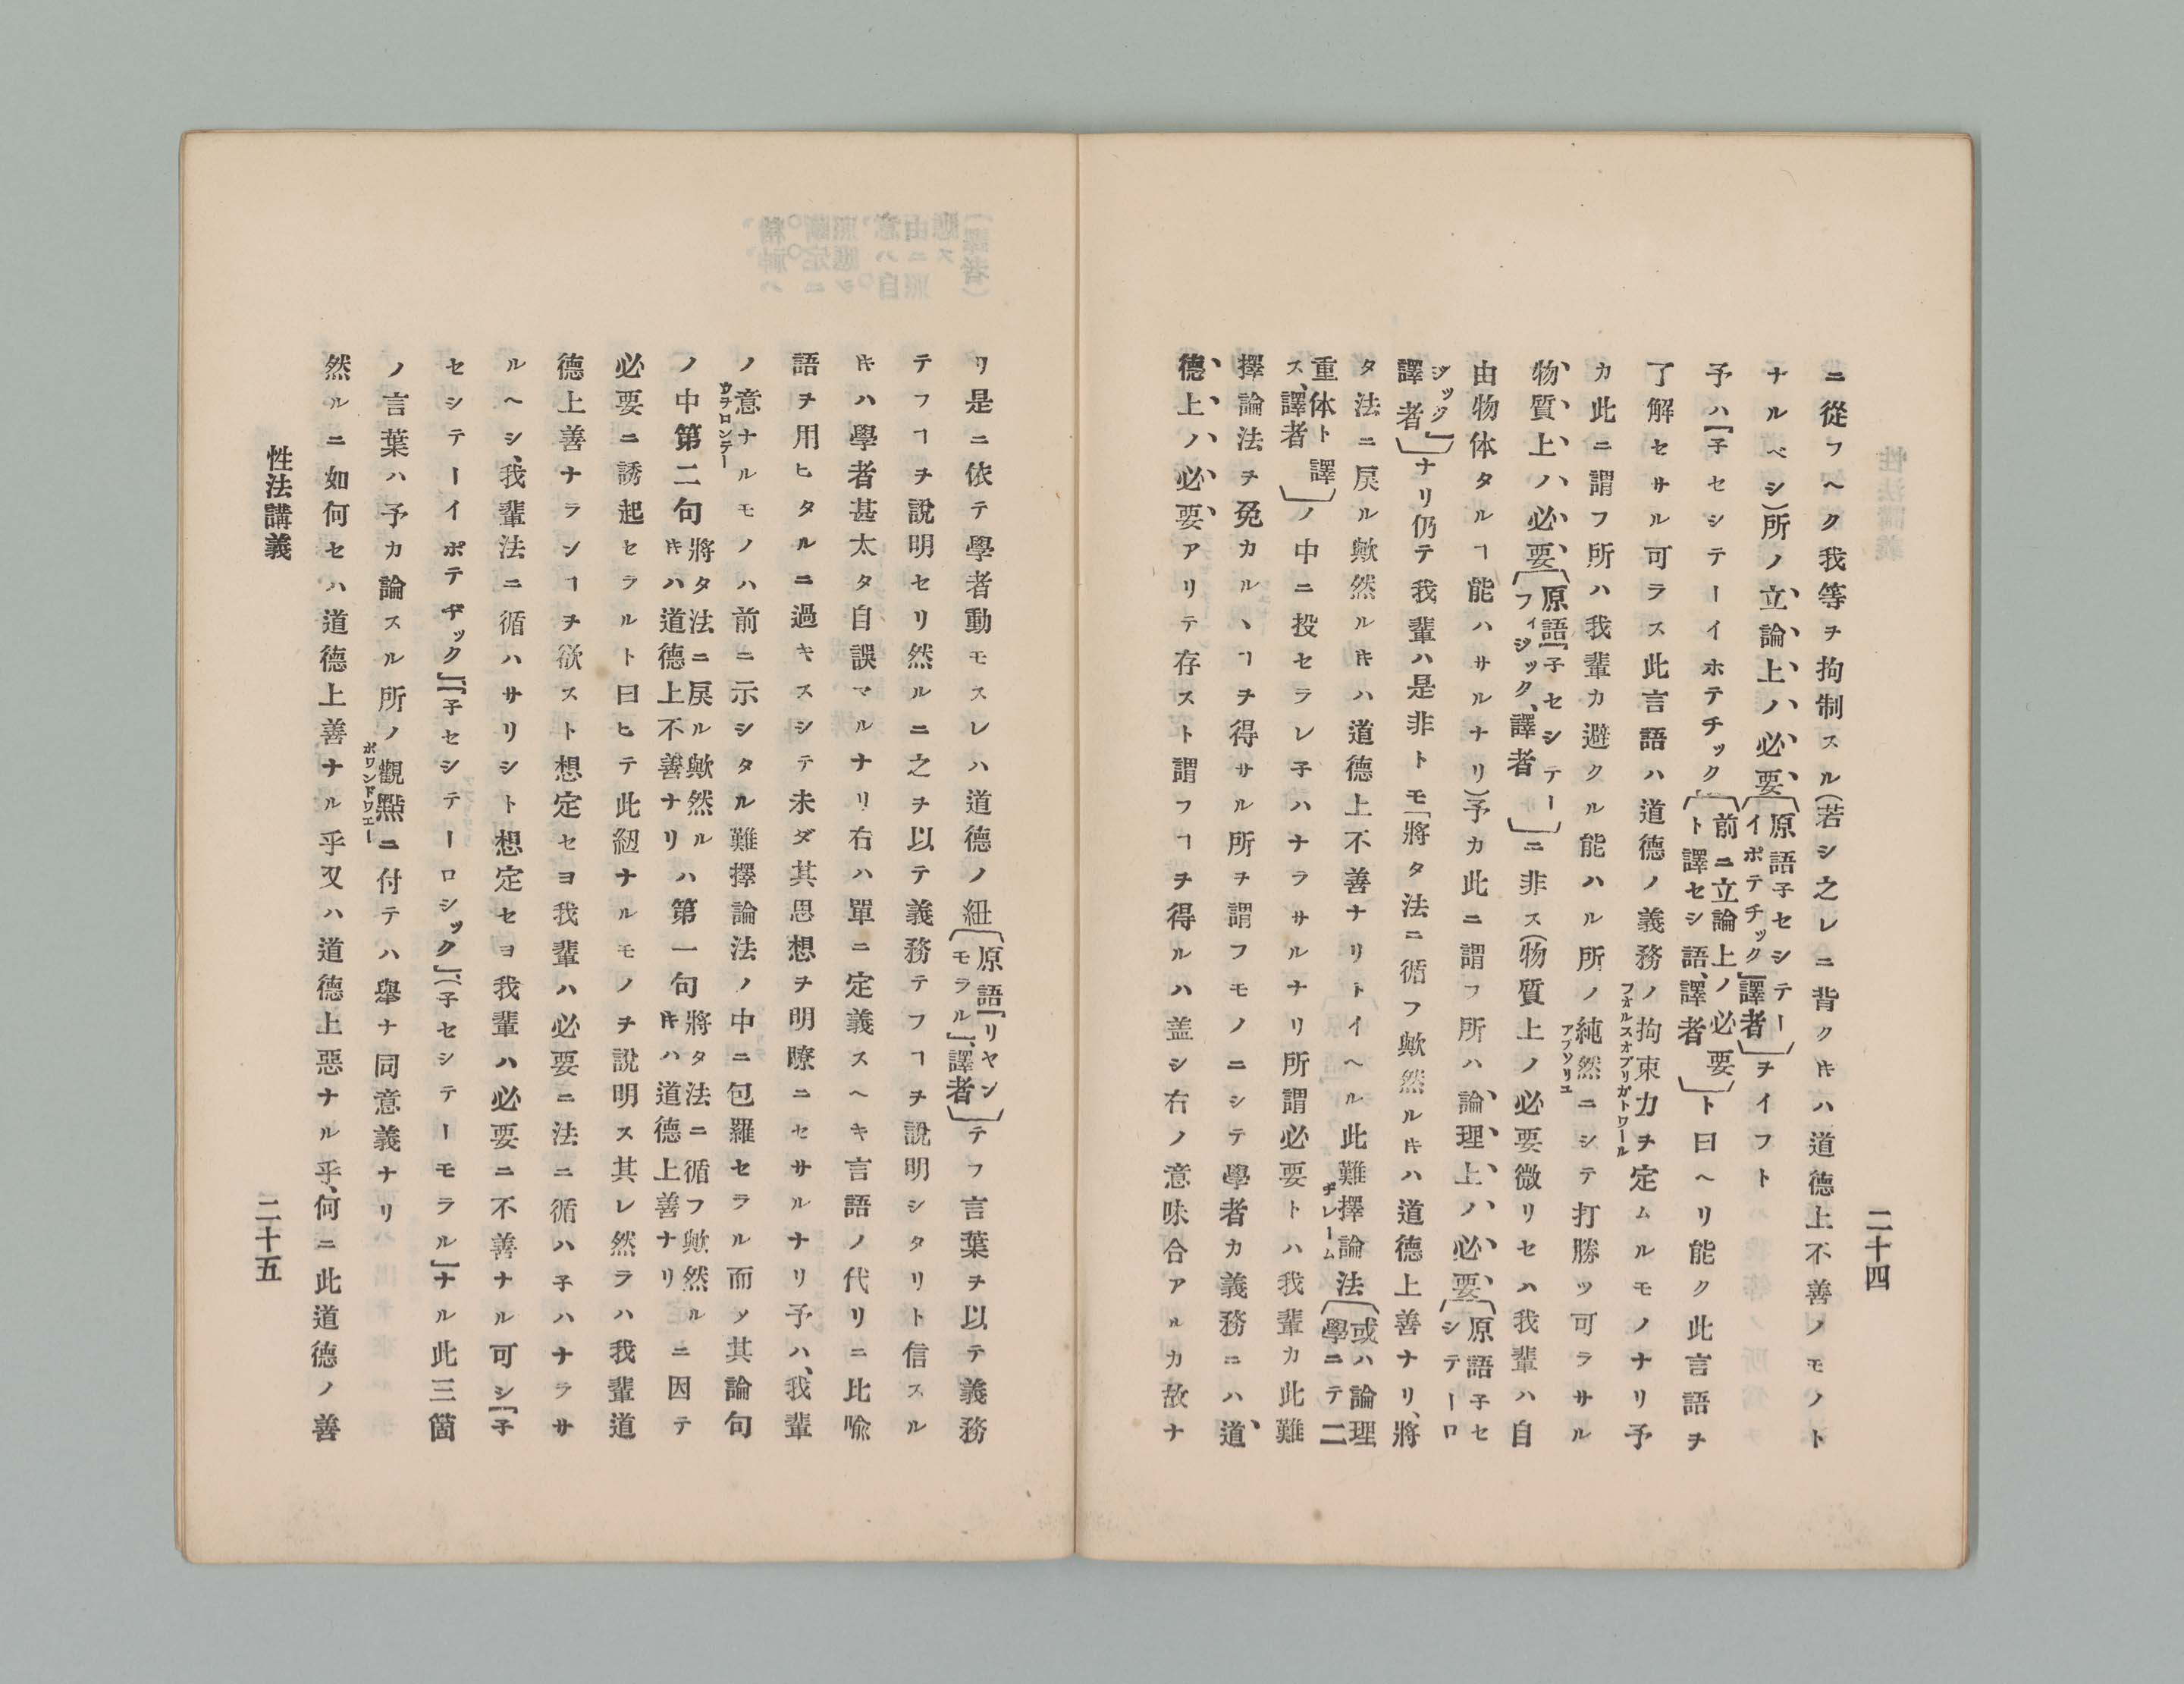 二十四
ニ從フヘク我等ヲ拘制スル(若シ之レニ背クキハ道德上不善ノモノト
ナルベシ)所ノ立論上ノ必要〔原語子セシテーイポテチック」譯者〕ヲイフト
予ハ「子セシテーイホテチック〔前ニ立論上ノ必要ト譯セシ語、譯者〕ト曰ヘリ能ク此言語ヲ
了解セサル可ラス此言語ハ道德ノ義務ノ拘束力ヲ定ムルモノナリ予
フオルスオブリガトワール
カ此ニ謂フ所ハ我輩カ避クル能ハル所ノ純然ニシテ打勝ツ可ラサル
アブソリユ
物質上ハ必要〔原語「子セシテーフィジック、譯者〕ニ非ス(物質上ノ必要微リセハ我輩ハ自
由物体タルヿ能ハサルナリ)予カ此ニ謂フ所ハ論理上ノ必要〔原語子セシテーロ
ジック」譯者〕ナリ仍テ我輩ハ是非トモ「將タ法ニ循フ歟然ルキハ道德上善ナリ、將
タ法ニ戻ル歟然ルキハ道德上不善ナリトイヘル此難擇論法〔或ハ論理學ニテ二
ヂレーム
重体ト譯ス、譯者〕ノ中ニ投セラレ子ハナラサルナリ所謂必要トハ我輩カ此難
擇論法ヲ免カルヽヿヲ得サル所ヲ謂フモノニシテ學者カ義務ニハ道
德上ハ必要アリテ存スト謂フヿヲ得ルハ盖シ右ノ意味合アルカ故ナ
リ是ニ依テ學者動モスレハ道德ノ紐〔原語「リヤンモラル」、譯者〕テフ言葉ヲ以テ義務
テフヿヲ說明セリ然ルニ之ヲ以テ義務テフヿヲ說明シタリト信スル
キハ學者甚太タ自誤マルナリ右ハ單ニ定義スヘキ言語ノ代リニ比喩
語ヲ用ヒタルニ過キスシテ未ダ其思想ヲ明瞭ニセサルナリ予ハ、我輩
ノ意ナルモノハ前ニ示シタル難擇論法ノ中ニ包羅セラル而ソ其論句
カヲロンテー
ノ中第二句將タ法ニ戻ル歟然ルキハ道德上不善ナリハ第一句將タ法ニ循フ歟然ルキハ道德上善ナリニ因テ
必要ニ誘起セラルト曰ヒテ此紐ナルモノヲ說明ス其レ然ラハ我輩道
德上善ナランヿヲ欲スト想定セヨ我輩ハ必要ニ法ニ循ハ子ハナラサ
ルヘシ、我輩法ニ循ハサリシト想定セヨ我輩ハ必要ニ不善ナル可シ「子
セシテーイポテヂック」「子セシテーロシック」「子セシテーモラル」ナル此三箇
ノ言葉ハ予カ論スル所ノ觀點ニ付テハ擧ナ同意義ナリ
ポワンドワエー
然ルニ如何セハ道德上善ナル乎又ハ道德上惡ナル乎、何ニ此道德ノ善
性法講義
二十五